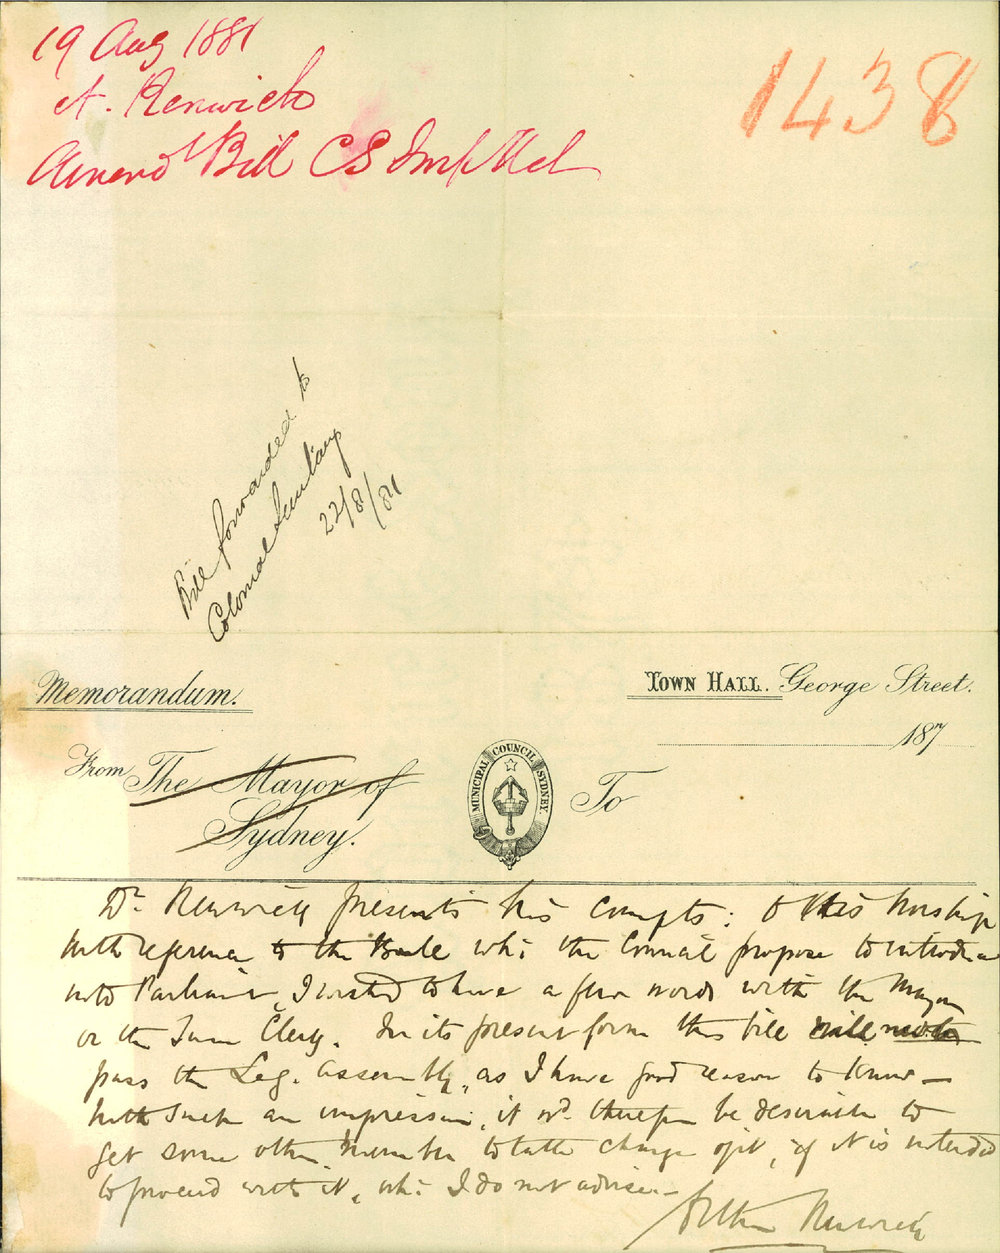 19 Aug 1881
A. Renwick
Amend Bill CS Imp Act
1438
Bill forwarded to
Colonial Secretary
22/8/81
Memorandum.
TOWN HALL. George Street.
187
From The Mayor of
Sydney.
MUNICIPAL COUNCIL SYDNEY.
To
Dr. Renwick presents his compts: to His Worship
with reference to the Bill wh: the Council propose to introduce
into Parliament, I wished to have a few words with the Mayor
or the Town Clerk. In its present form the bill will not
pass the Leg. Assembly, as I have good reason to know—
With such an impression, it wd. therefore be desirable to
get some other Member to take charge of it, if it is intended
to proceed with it, wh: I do not advise.—
Arthur Renwick